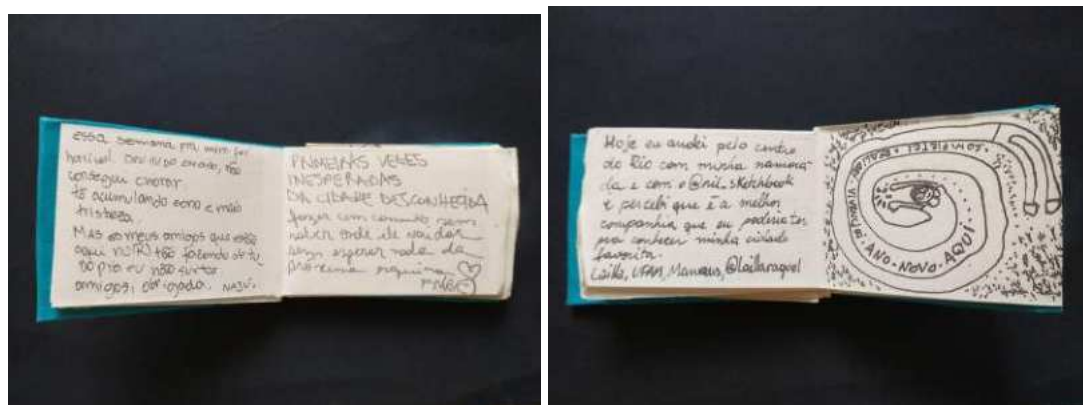 essa semana pra mim foi
horrível. Deu tudo errado, não
consegui chorar.
tô acumulando sono e mais
tristeza.
MAS os meus amigos que estão
aqui no RJ tão fazendo de tu
do pra eu não surtar
amigos, obrigada. NAJU.
PRIMEIRAS VEZES
INESPERADAS
DA CIDADE DESCONHECIDA
fazer com sem
saber onde ele vai dar
sem esperar nada da
próxima esquina
Hoje eu andei pelo centro
do Rio com minha namora
da e com o @nil_sketchbook
e percebi que é a melhor
companhia que eu poderia ter
pra conhecer minha cidade
favorita.
Lailla, UFAM, Manaus, @laillaraquel
ANO-NOVO-AQUI